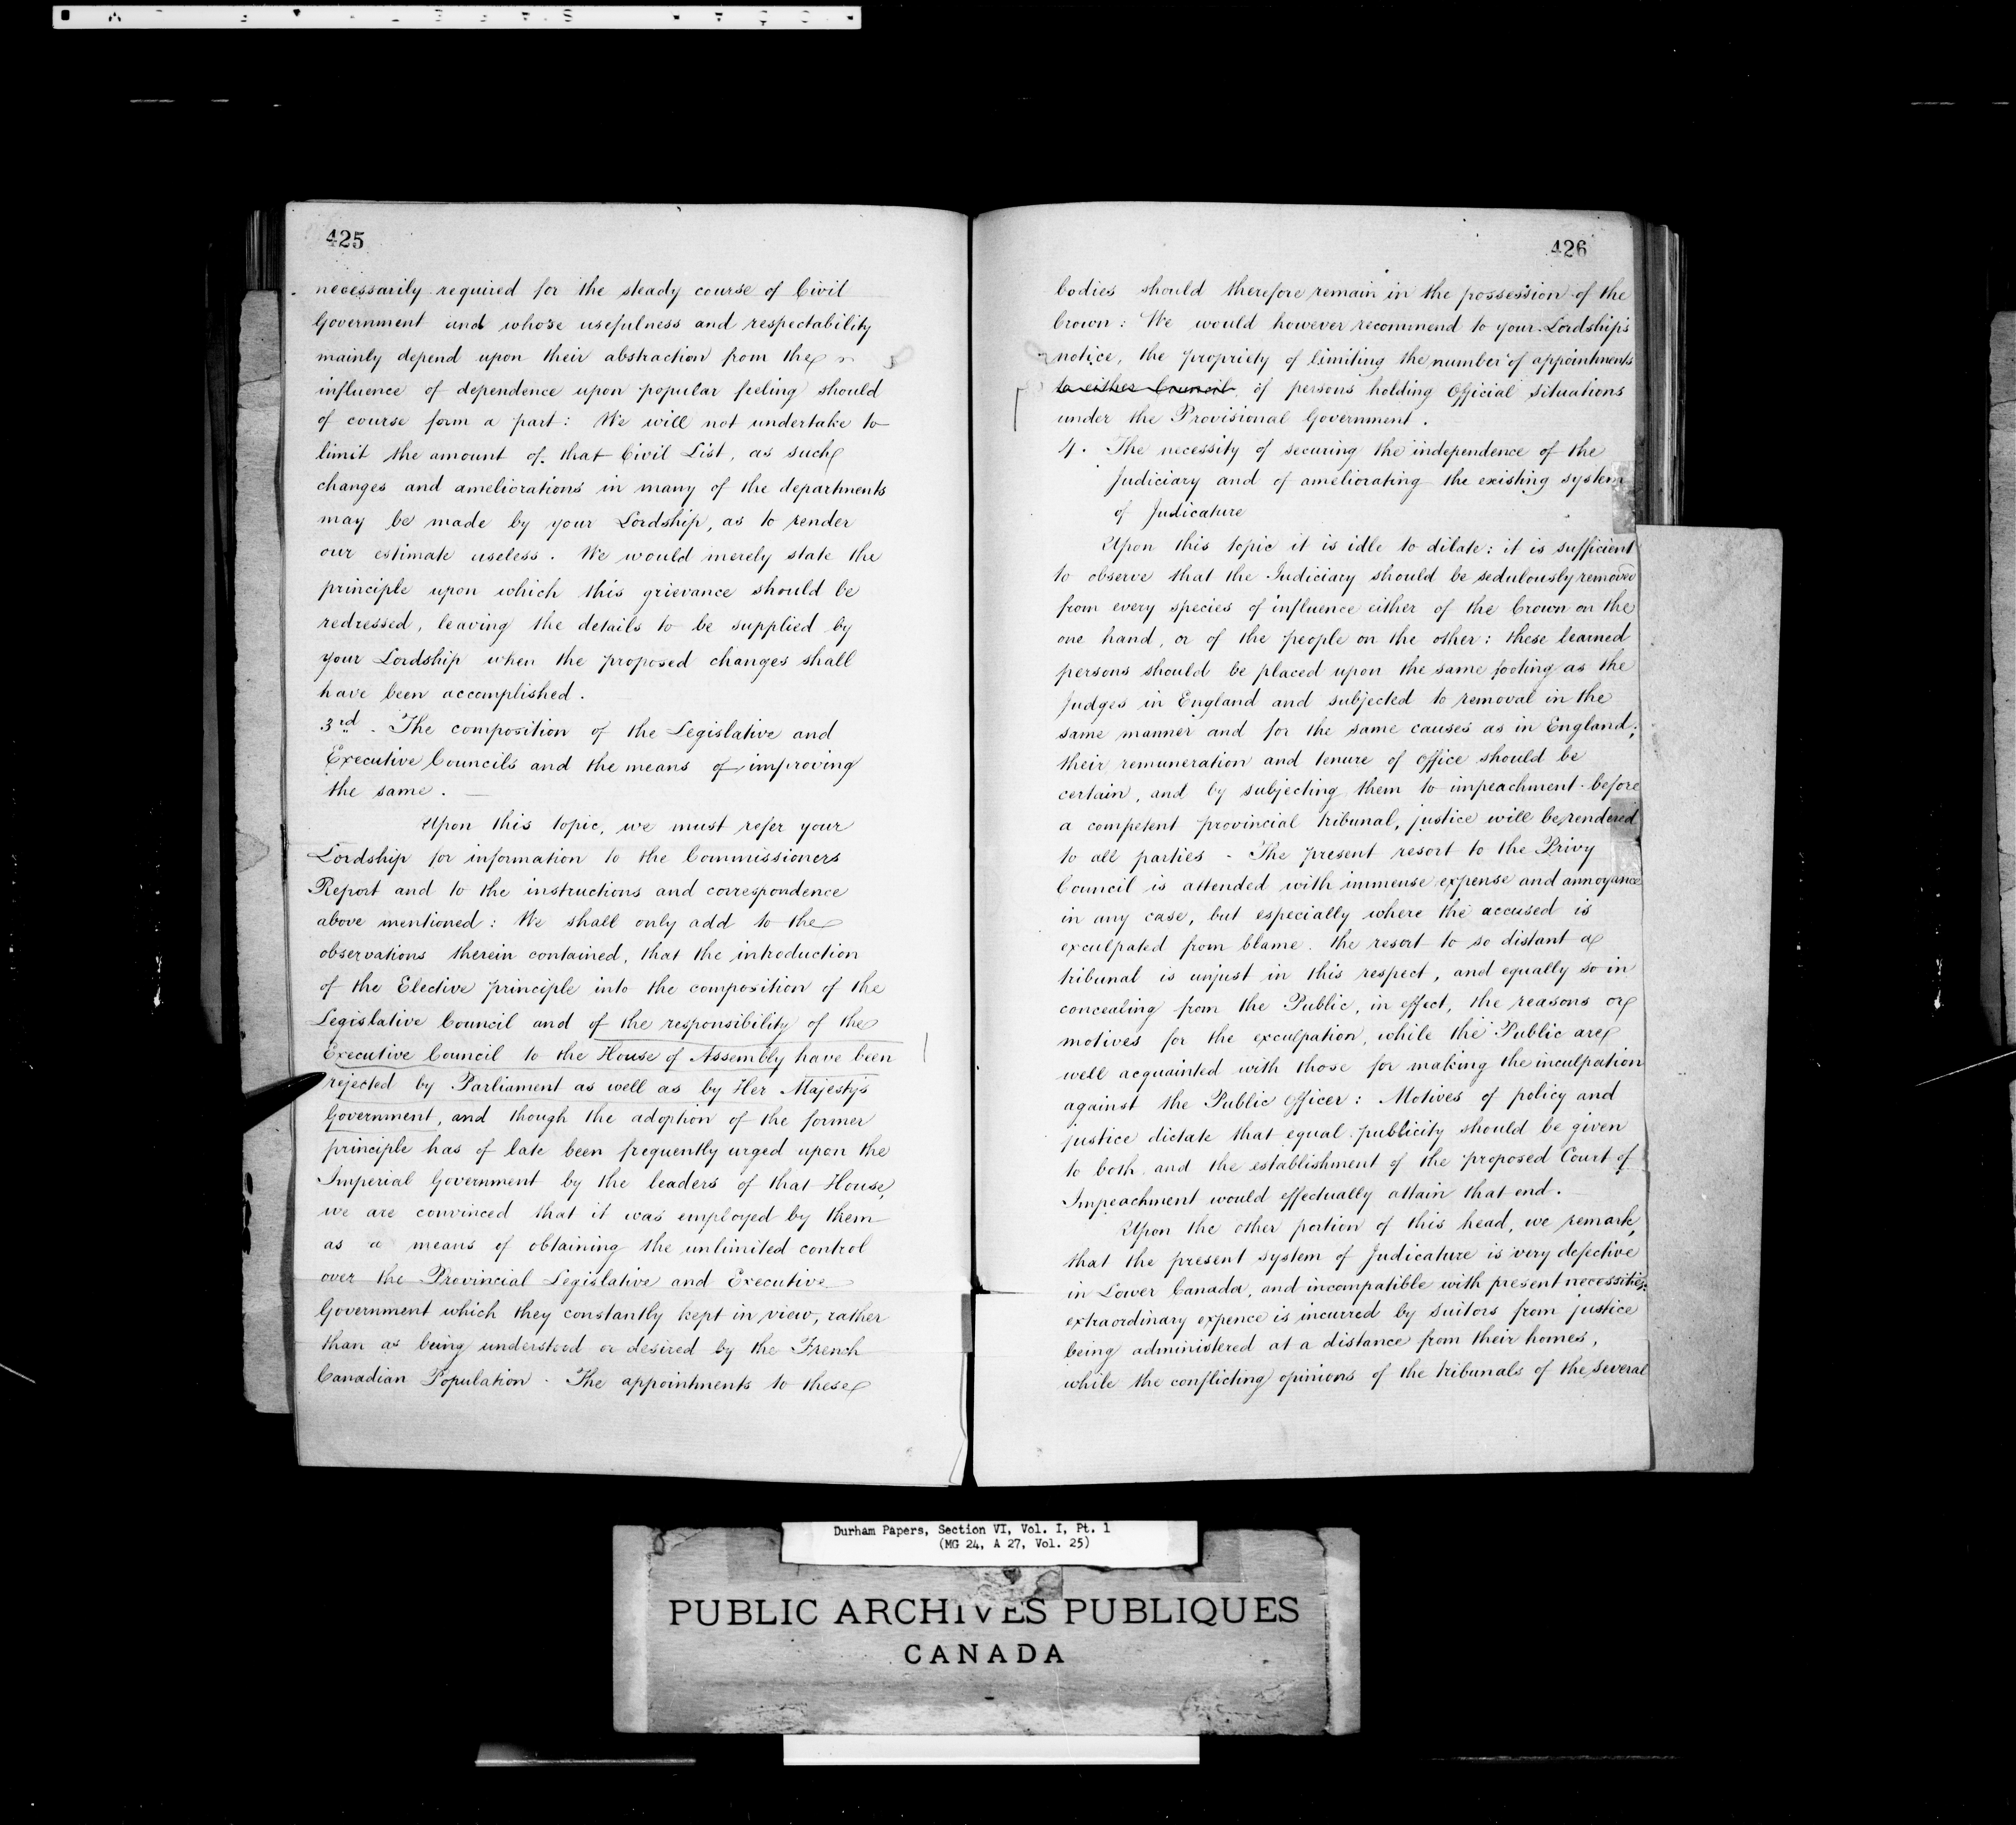 425
necessarily required for the steady course of Civil
Government and whose usefulness and respectability
mainly depend upon their abstraction from the
influence of dependence upon popular feeling should
of course form a part: We will not undertake to
limit the amount of that Civil List, as such
changes and ameliorations in many of the departments
may be made by your Lordship, as to render
our estimate useless. We would merely state the
principle upon which this grievance should be
redressed, leaving the details to be supplied by
your Lordship when the proposed changes shall
have been accomplished.
3rd. The composition of the Legislative and
Executive Councils and the means of improving
the same. —
Upon this topic, we must refer your
Lordship for information to the Commissioners
Report and to the instructions and correspondence
above mentioned: We shall only add to the
observations therein contained, that the introduction
of the Elective principle into the composition of the
Legislative Council and of the responsibility of the
Executive Council to the House of Assembly have been
rejected by Parliament as well as by Her Majesty's
Government, and though the adoption of the former
principle has of late been frequently urged upon the
Imperial Government by the leaders of that House,
we are convinced that it was employed by them
as a means of obtaining the unlimited control
over the Provincial Legislative and Executive
Government which they constantly kept in view, rather
than as being understood or desired by the French
Canadian Population. The appointments to these
426
bodies should therefore remain in the possession of the
Crown: We would however recommend to your Lordship's
notice, the propriety of limiting the number of appointments
to either Council of persons holding Official situations
under the Provisional Government.
4. The necessity of securing the independence of the
Judiciary and of ameliorating the existing system
of Judicature
Upon this topic it is idle to dilate: it is sufficient
to observe that the Judiciary should be sedulously removed
from every species of influence either of the Crown on the
one hand, or of the people on the other: these learned
persons should be placed upon the same footing as the
Judges in England and subjected to removal in the
same manner and for the same causes as in England;
their remuneration and tenure of office should be
certain, and by subjecting them to impeachment before
a competent provincial tribunal, justice will be rendered
to all parties - The present resort to the Privy
Council is attended with immense expense and annoyance
in any case, but especially where the accused is
exculpated from blame. the resort to so distant a
tribunal is unjust in this respect, and equally so in
concealing from the Public, in effect, the reasons or
motives for the exculpation, while the Public are
well acquainted with those for making the inculpation
against the Public Officer: Motives of policy and
justice dictate that equal publicity should be given
to both and the establishment of the proposed Court of
Impeachment would effectually attain that end.
Upon the other portion of this head, we remark,
that the present system of Judicature is very defective
in Lower Canada, and incompatible with present necessities:
extraordinary expence is incurred by suitors from justice
being administered at a distance from their homes,
while the conflicting opinions of the tribunals of the several
Durham Papers, Section VI, Vol. I, Pt. 1
(MG 24, A 27, Vol. 25)
PUBLIC ARCHIVES PUBLIQUES
CANADA